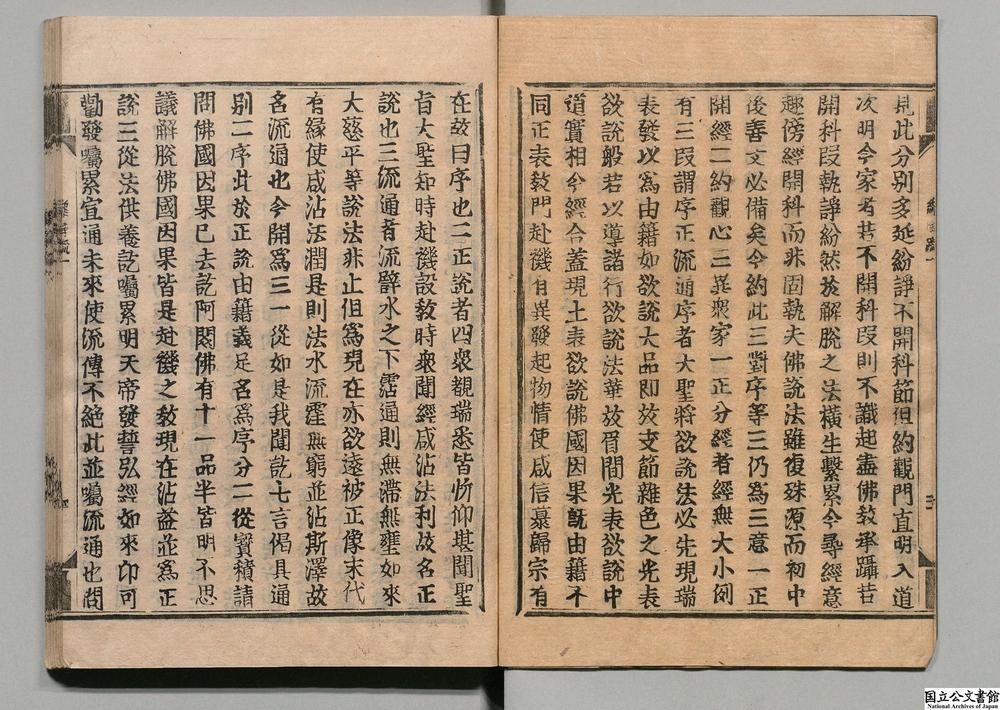 見此分別多延紛諍不開科節但約觀門直明入道
次明今家者若不開科段則不識起盡佛敎承躡若
開科段執諍紛然於解脫之法橫生繫累今尋經意
趣傍經開科而非固執夫佛說法雖復殊源而初中
後善文必備矣今約此三對序等三仍爲三意一正
開經二約觀心三異衆家一正分經者經無大小例
有三段謂序正流通序者大聖將欲說法必先現瑞
表發以爲由籍如欲說大品卽放支節雜色之光表
欲說般若以導諸行欲說法華放眉間光表欲說中
道實相今經合蓋現土表欲說佛國因果旣由籍不
同正表敎門赴機有異發起物情使咸信慕歸宗有
在故曰序也二正說者四衆覩瑞悉皆忻仰堪聞聖
旨大聖知時赴機設敎時衆聞經咸沾法利故名正
說也三流通者流譬水之下霑通則無滯無壅如來
大慈平等說法非止但爲現在亦欲遠被正像末代
有緣使咸沾法潤是則法水流霔無窮並沾斯澤故
名流通也今開爲三一從如是我聞訖七言偈具通
別二序此於正說由籍義足名爲序分二從寶積請
問佛國因果已去訖阿閦佛有十一品半皆明不思
議解脫佛國因果皆是赴機之敎現在沾益並爲正
說三從法供養訖囑累明天帝發誓弘經如來印可
勸發囑累宣通未來使流傳不絕此並囑流通也問
国立公文書館
National Archives of Japan